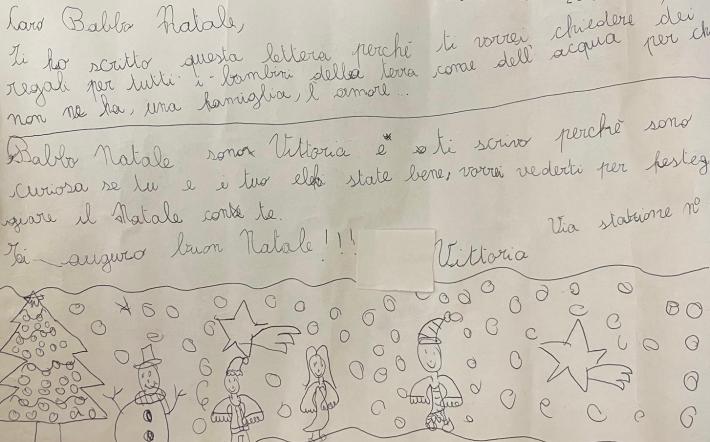 Caro Babbo Natale,
Ti ho scritto questa lettera perché ti vorrei chiedere dei
regali per tutti i bambini della terra come dell'acqua per chi
non ne ha, una famiglia, l'amore...
Babbo Natale sono Vittoria e ti scrivo perchè sono
curiosa se tu e i tuo elfi state bene, vorrei vederti per festeg
giare il Natale con te.
Via stazione n°
Ti auguro buon Natale!!! Vittoria